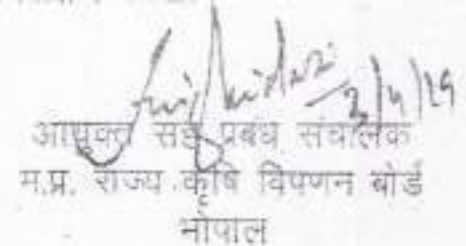 3/4/19
आयुक्त सह प्रबंध संचालक
म.प्र. राज्य कृषि विपणन बोर्ड
भोपाल